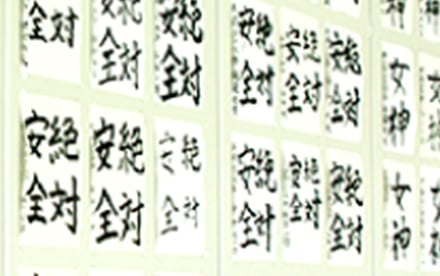 絶対
安全
絶対
安全
絶対
安全
絶対
安全
絶対
安全
絶対
安全
絶対
安全
絶対
安全
絶対
安全
絶対
安全
絶対
安全
対
全
神
女神
女神